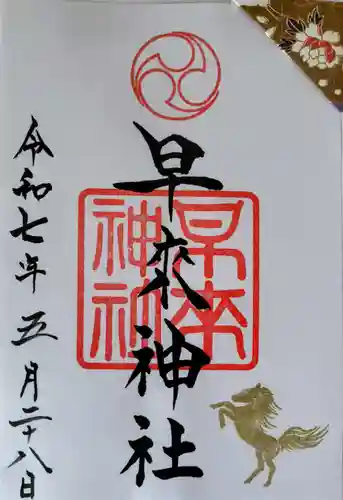 早來神社
令和七年五月二十八日
早來神社